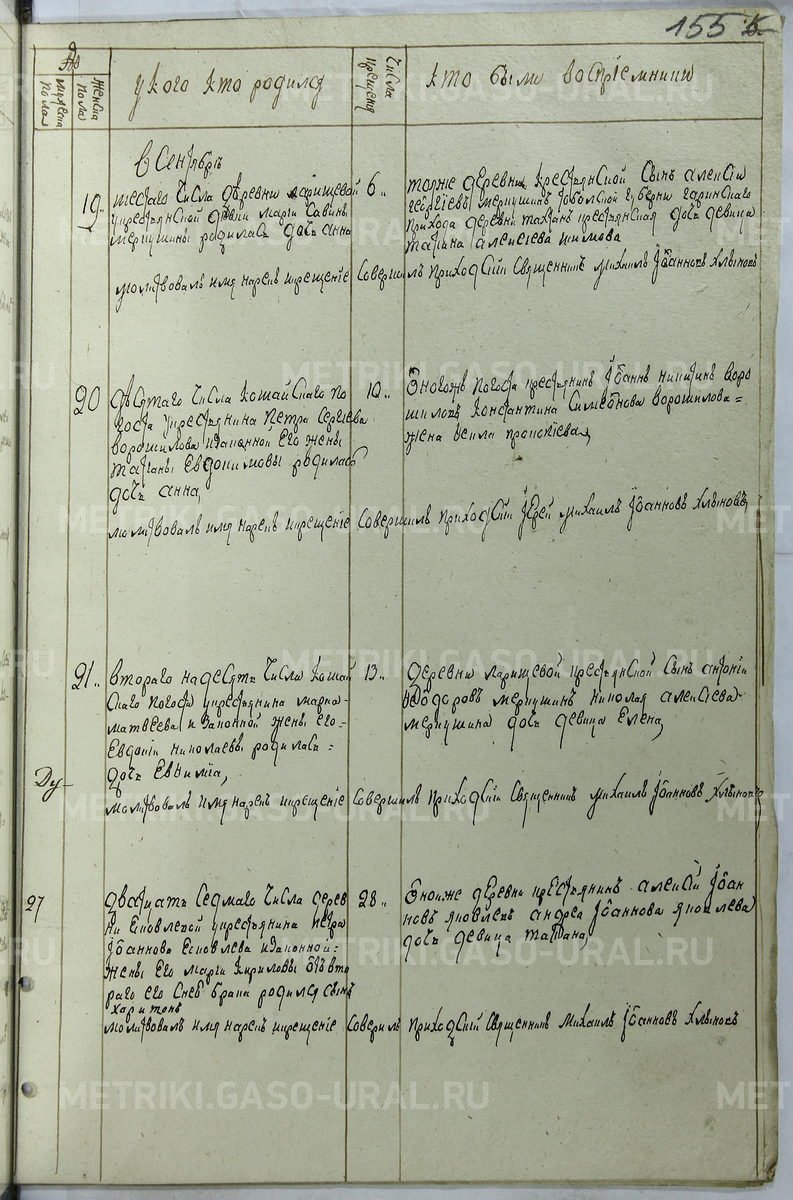 155
№
мужеска пола
женска пола
у кого кто родился
числа крещения
кто были восприемники
в Сентябрѣ
19.
шестаго числа деревни ларишевой
у крестьянской дѣвки марьи Савины
меркушины родилась дочь анна
6
тояже деревни крестьянской сынъ алексiй
георгiевъ меркушинъ тоболской губернiи гаринскаго
прихода деревни крестьянская дочь девица
татьяна алексiева шимова
молитвовалъ имя нарекъ и крещенiе совершилъ приходскiй священникъ михаилъ Iоанновъ хлыновъ
20
девятаго числа кошайскаго по
госта у крестьянина петра сергiева
ворошилова и законной его жены
татьяны Евдокимовы родилась
дочь анна,
10
Оногожъ погоста крестьянинъ Iоаннъ никитинъ воро
шиловъ константина симеонова ворошилова
жена прокопiева,
молитвовалъ имя нарекъ и крещенiе совершилъ приходскiй Iерей михаилъ Iоанновъ хлыновъ
21
втораго на десять числа кошай
скаго погоста у крестьянина марка
матвеева и законной жены его
Евдокiи николаевы родилась
дочь Евѳимiа,
13
деревни ларишевой крестьянской сынъ антонiй
ѳеодоровъ меркушинъ николая алексiева
меркушина дочь девица Елена,
молитвовалъ имя нарекъ и крещенiе совершилъ приходскiй священникъ михаилъ Iоанновъ хлыновъ
27
двадцать седмаго числа дерев
ни Яковлевой у крестьянина петра
Iоаннова Яковлева и законной
жены его марьи кириловы отъ вто
раго его брака родился сынъ
харитонъ
28
Оноиже деревни крестьянинъ алексiй Iоан
новъ яковлевъ андрея Iоаннова яковлева
дочь девица татiана,
молитвовалъ имя нарекъ и крещенiе соверилъ приходскiй священникъ михаилъ Iоанновъ хлыновъ
METRIKI.GASO-URAL.RU